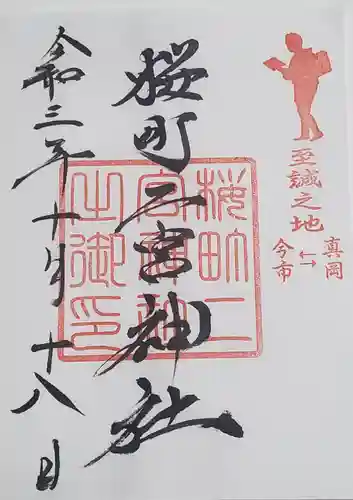 至誠之地
真岡
↔
今市
桜町二宮神社
桜町二
宮神社
之御印
令和三年十月十八日